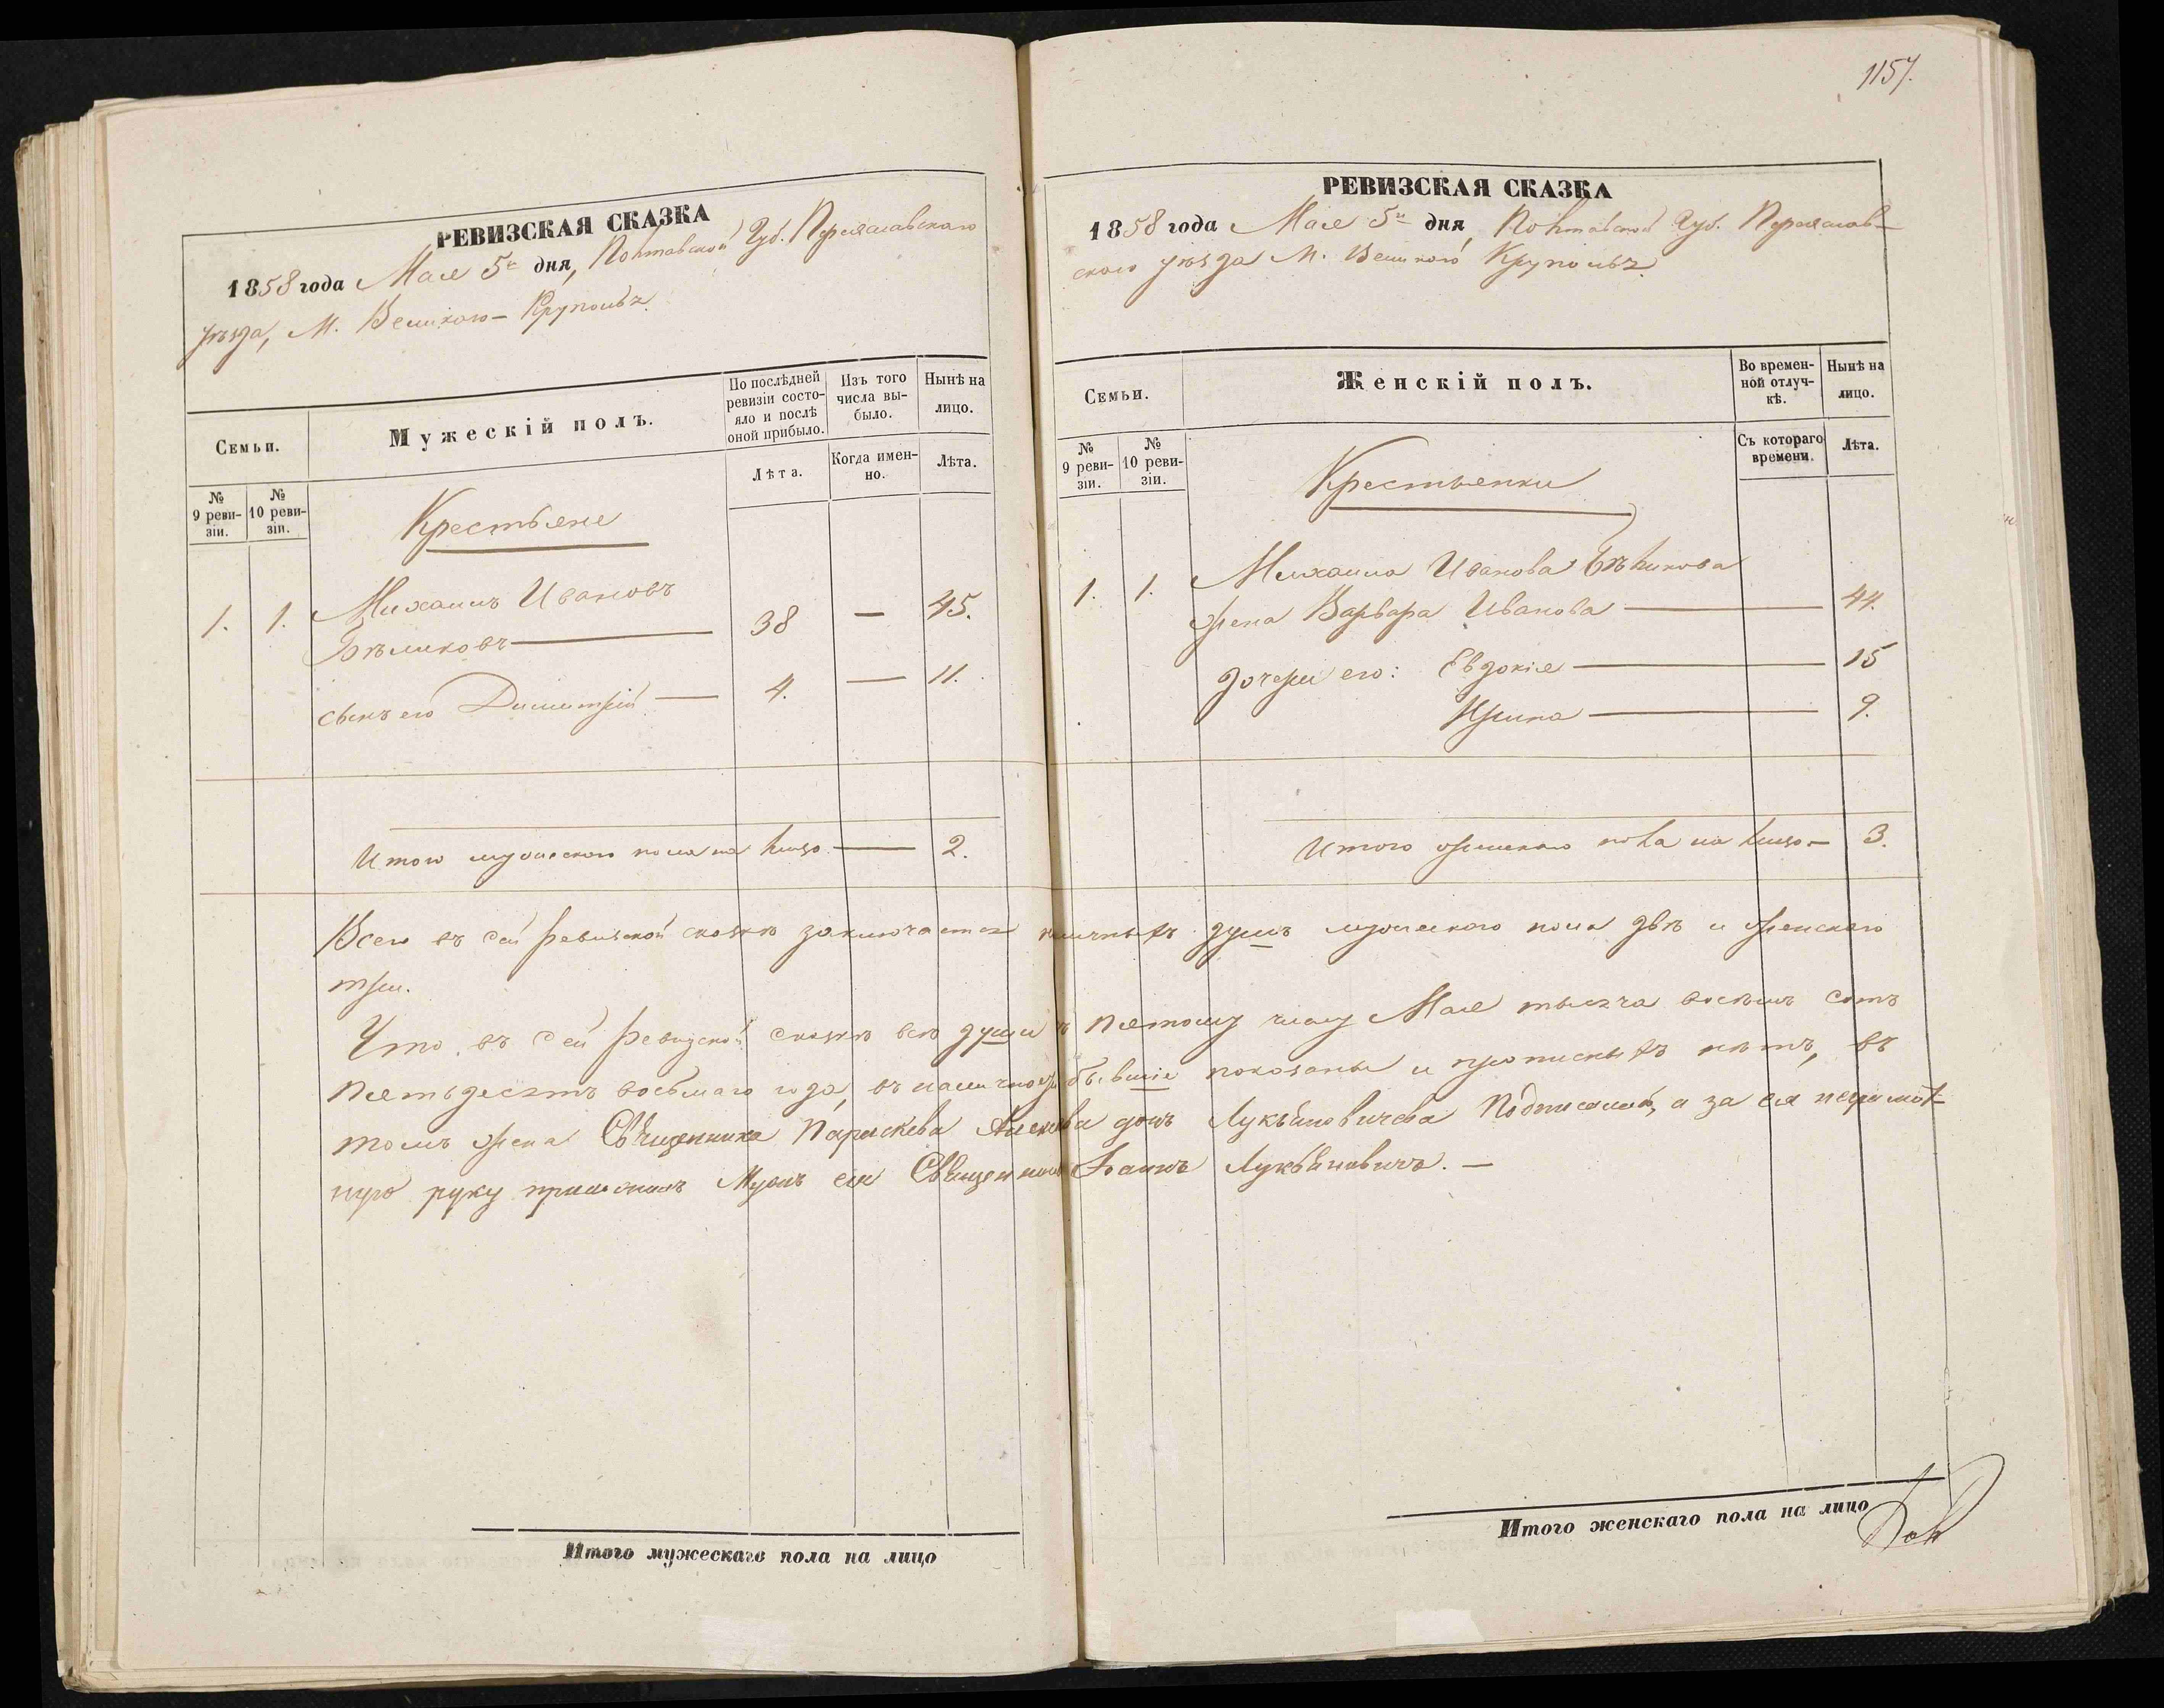 1157.
РЕВИЗСКАЯ СКАЗКА
1858 года Мая 5го дня, Полтавской Губ. Переяславскаго
уѣзда, М. Великого-Круполь.
Семьи.
Мужескій полъ.
По послѣдней ревизіи состояло и послѣ оной прибыло.
Изъ того числа выбыло.
Нынѣ на лицо.
№ 9 ревизіи.
№ 10 ревизіи.
Лѣта.
Когда именно.
Лѣта.
Крестьяне
1. 1. Михаилъ Ивановъ
Бѣликовъ — 38 — 45.
сынъ его Димитрій — 4. — 11.
Итого мужескаго пола на лицо — 2.
РЕВИЗСКАЯ СКАЗКА
1858 года Мая 5го дня, Полтавской Губ. Переяслав-
скаго уѣзда М. Великого Круполь.
Семьи.
Женскій полъ.
Во временной отлучкѣ.
Нынѣ на лицо.
№ 9 ревизіи.
№ 10 ревизіи.
Съ котораго времени.
Лѣта.
Крестьянки
1. 1. Михаила Иванова Бѣликова
жена Варвара Иванова — 44.
дочери его: Евдокія — 15
Ирина — 9.
Итого женскаго пола на лицо — 3.
Всего въ сей ревизской сказкѣ заключается наличныхъ душъ мужескаго пола двѣ и женскаго
три.
Что въ сей ревизской сказкѣ всѣ души къ пятому числу Мая тысяча восемь сотъ
пятьдесятъ восьмаго года, въ наличности бывшіе показаны и прописныхъ нѣтъ, въ
томъ жена Священника Параскева дочь Лукьяновичева Подписалась, а за ея неграмот-
ную руку приложилъ Мужъ ея Священникъ Лукьяновичъ. —
Итого мужескаго пола на лицо
Итого женскаго пола на лицо